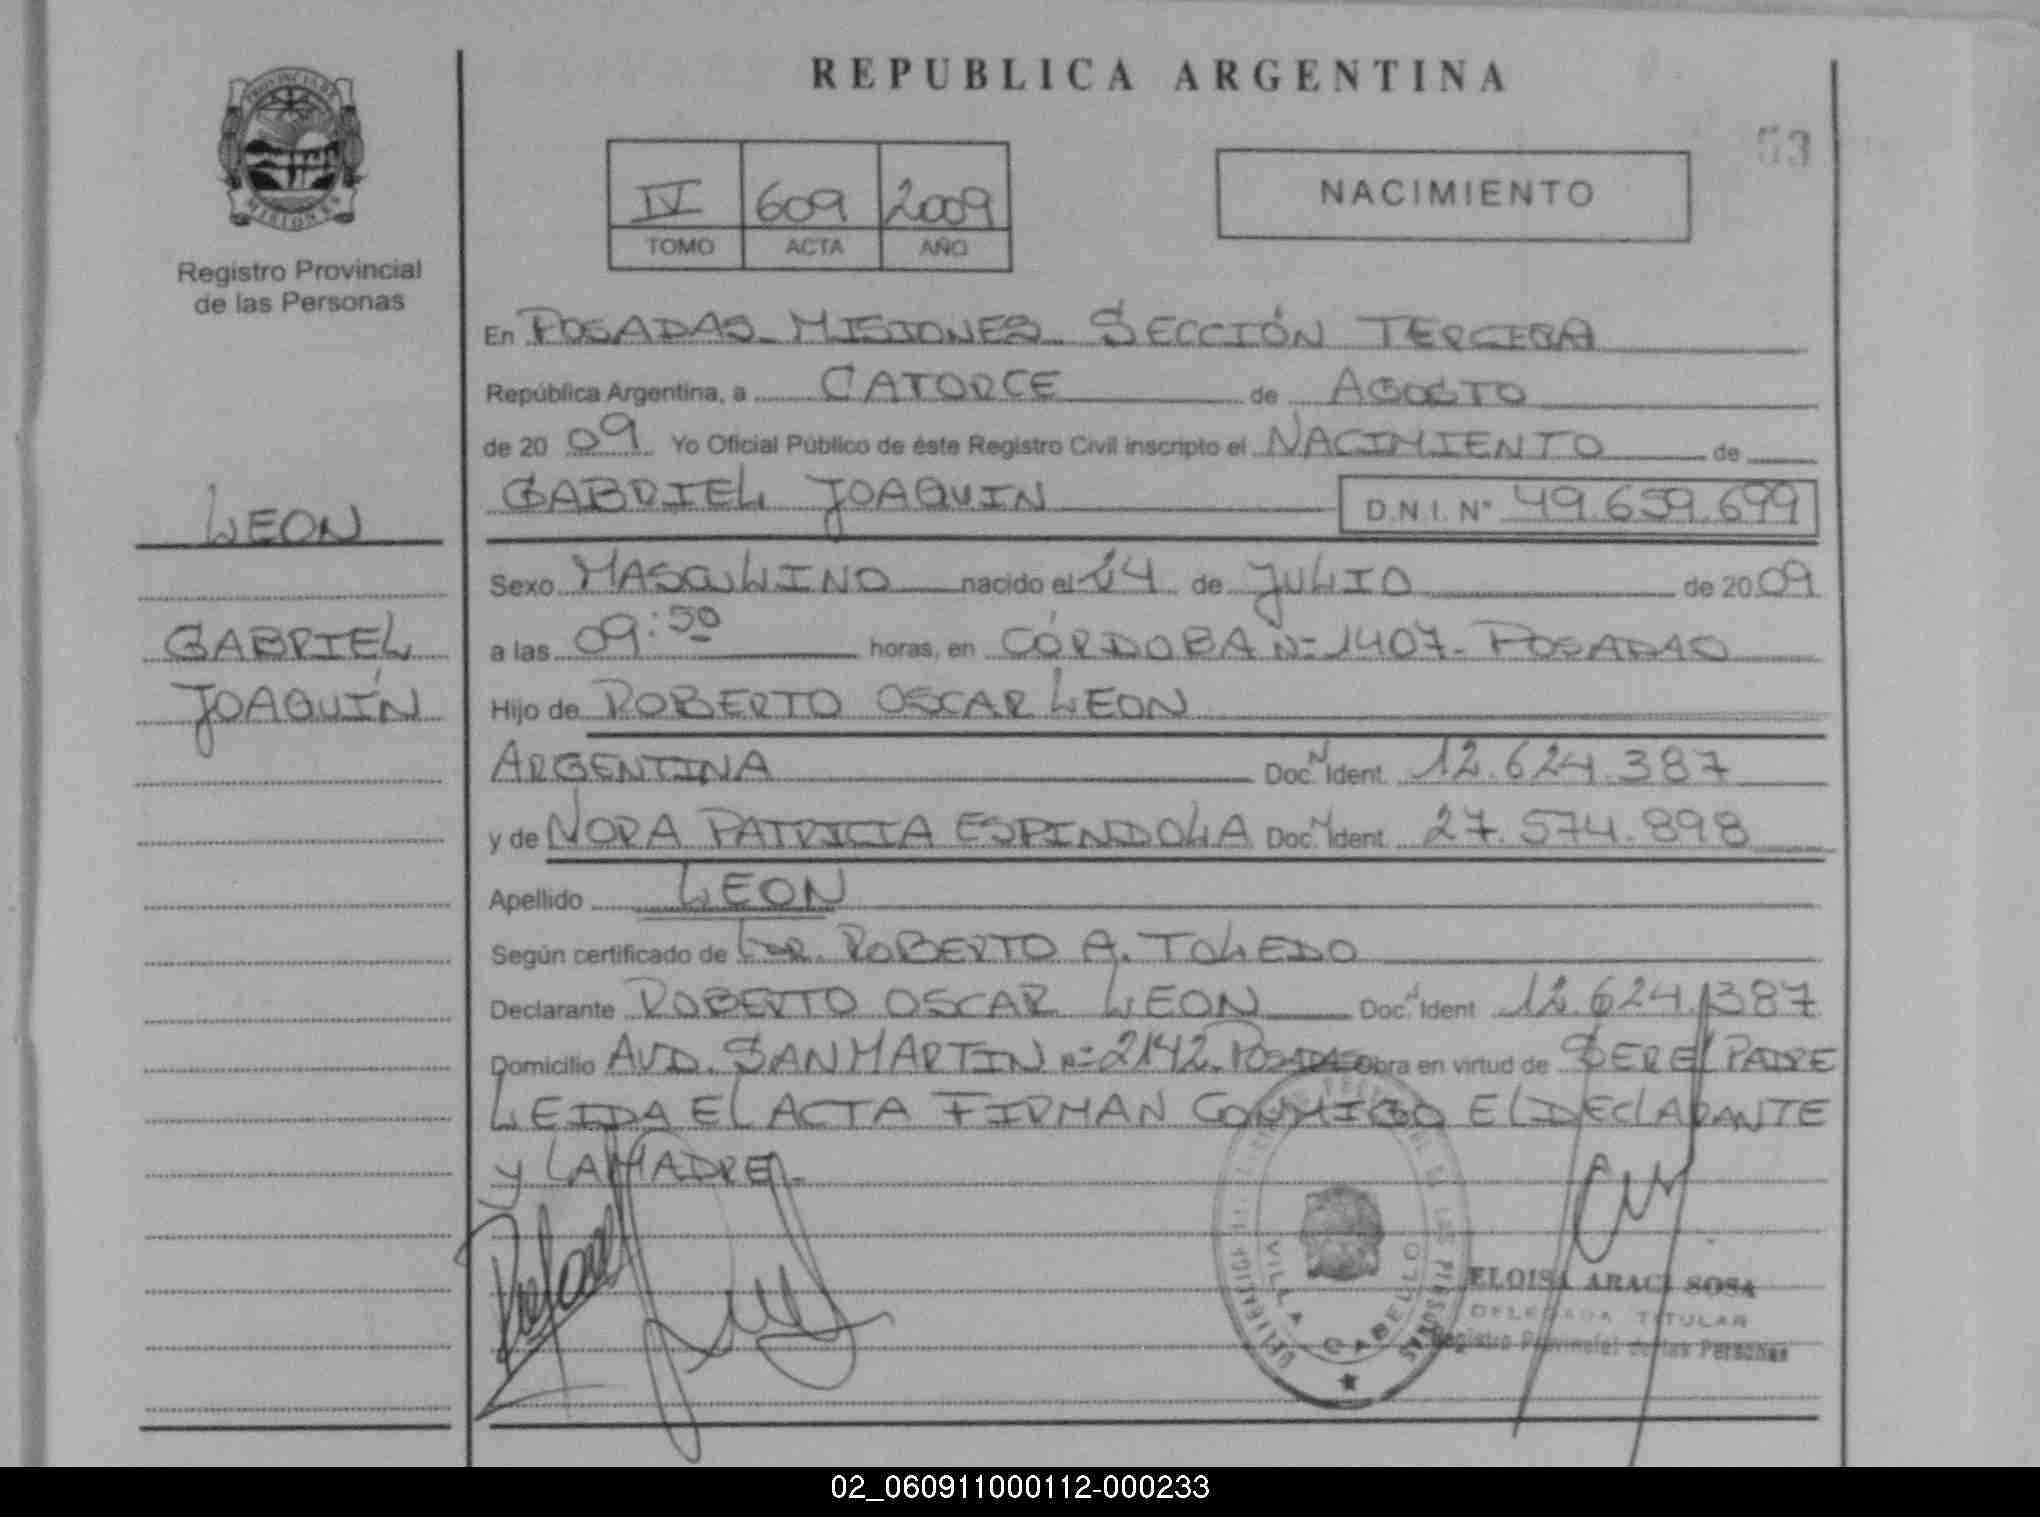 REPUBLICA ARGENTINA
53
PROVINCIA DE
MISIONES
IV 609 2009
TOMO ACTA AÑO
NACIMIENTO
Registro Provincial
de las Personas
En POSADAS - MISIONES - SECCIÓN TERCERA
República Argentina, a CATORCE de AGOSTO
de 2009 Yo Oficial Público de éste Registro Civil inscripto el NACIMIENTO de
GABRIEL JOAQUIN D.N.I. Nº 49.659.699
LEON
Sexo MASCULINO nacido el 14 de JULIO de 2009
GABRIEL
a las 09:50 horas, en CÓRDOBA Nº 1407 - POSADAS
JOAQUÍN
Hijo de ROBERTO OSCAR LEON
ARGENTINA Doc. N Ident. 12.624.387
y de NORA PATRICIA ESPINDOLA Doc. N Ident. 27.574.898
Apellido LEON
Según certificado de DR. ROBERTO A. TOLEDO
Declarante ROBERTO OSCAR LEON Doc. N Ident 12.624.387
Domicilio AVD. SAN MARTIN Nº 2142 - POSADAS Obra en virtud de SER EL PADRE
LEIDA EL ACTA FIRMAN CONMIGO EL DECLARANTE
y LA MADRE -
VILLA CABELLO
ELOISA ARACI SOSA
DELEGADA TITULAR
Registro Provincial de las Personas
02_060911000112-000233